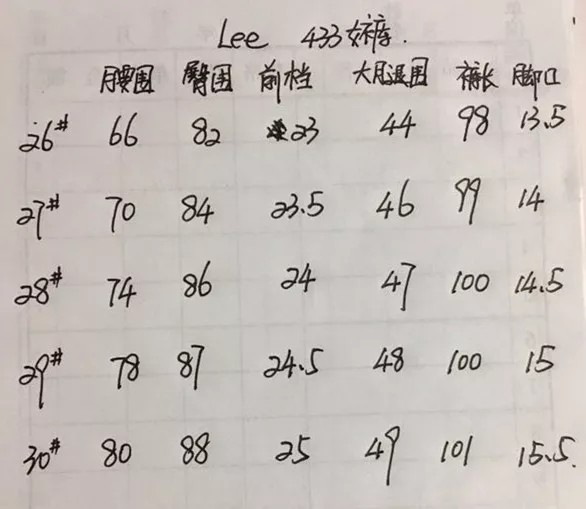 Lee 433女裤.
腰围 臀围 前档 大腿围 裤长 脚口
26# 66 82 23 44 98 13.5
27# 70 84 23.5 46 99 14
28# 74 86 24 47 100 14.5
29# 78 87 24.5 48 100 15
30# 80 88 25 49 101 15.5.